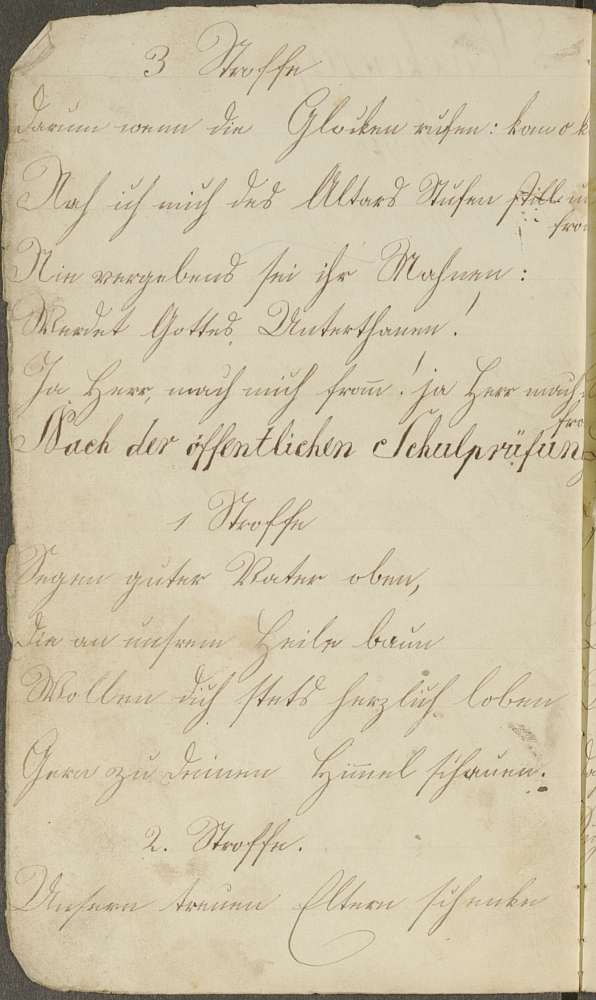 3 Stroffe
Darum wenn die Glocken rufen: kom o k
Nah ich mich des Altars Stufen still u
fro
Nie vergebens sei ihr Mahnen:
Werdet Gottes Unterthanen!
Ja Herr, mach mich from̄! ja Herr mach
fro
Nach der öffentlichen Schulprüfun
1 Stroffe
Segen guter Vater oben,
Die an unsrem Heile baun
Wollen dich stets herzlich loben
Gern zu deinen Him̄el schauen.
2. Stroffe.
Unsern treuen Eltern schenke